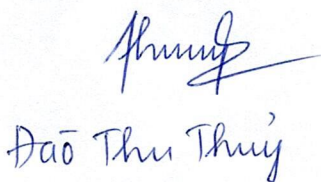 Đaō Thu Thuỷ